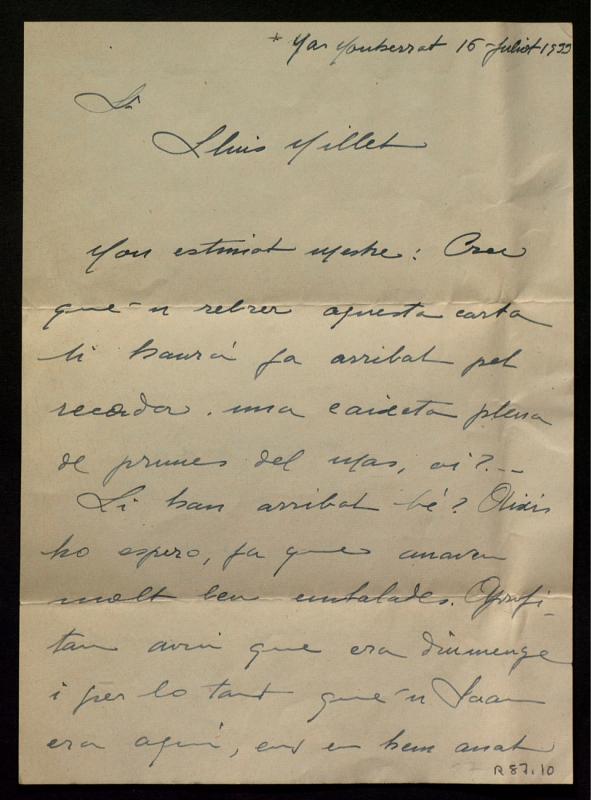 * Mas Montserrat 16-Juliol 1933
Sr.
Lluis Millet
Mon estimat Mestre: Crec
que'n rebrer aquesta carta
li haurá ja arribat pel
recader. una caixeta plena
de prunes del Mas, oi?...
Li han arribat bé? Aixis
ho espero, ja que anaven
molt ben embalades. Aprofi-
tam avui que era diumenge
i per lo tant que'n Joan
era aquí, ens en hem anat
R87.10